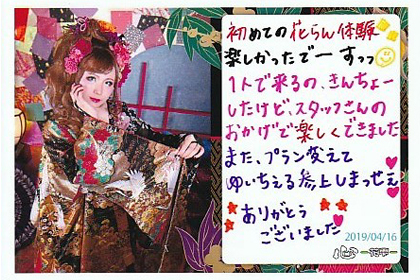 初めての花らん体験
楽しかったでーすっっ
1人で来るの、きんちょー
したけど、スタッフさんの
おかげで楽しくできました
また、プラン変えて
ゆいちえる参上しまっせぇ
ありがとう
ございました
2019/04/16